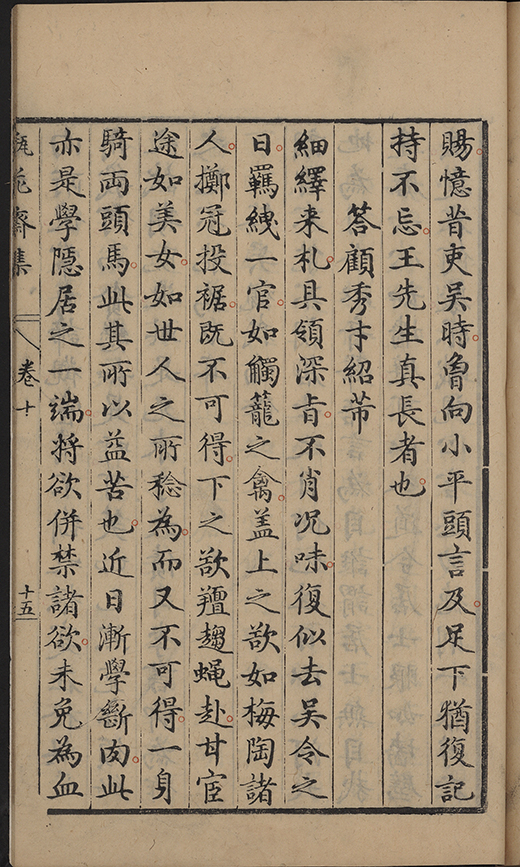 賜憶昔吏吴時曾向小平頭言及足下猶復記
持不忘王先生真長者也
答顧秀才紹芾
細繹来札具領深㫖不肖况味復似去吴令之
日羈絏一官如觸籠之禽盖上之欲如梅陶諸
人擲冠投裾既不可得下之欲羶趨蝇赴甘宦
途如美女如世人之所稔為而又不可得一身
騎両頭馬此其所以益苦也近日漸學斷肉此
亦是學隠居之一端将欲併禁諸欲未免為血
瓶花齋集
卷十
十五